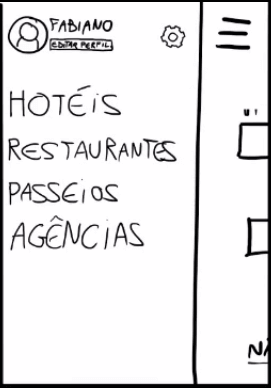 FABIANO
EDITAR PERFIL
HOTÉIS
RESTAURANTES
PASSEIOS
AGÊNCIAS